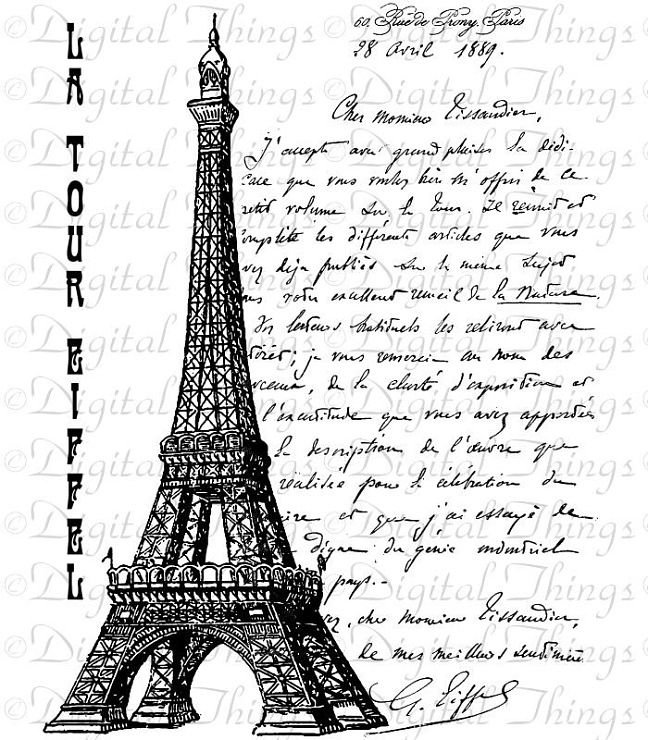 LA TOUR EIFFEL
60, Rue de Prony, Paris
28 Avril 1889.
Cher Monsieur Tissandier,
J'accepte avec grand plaisir la dédi-
cace que vous voulez bien m'offrir de ce
petit volume sur la Tour. Il réunit et
complète les différents articles que vous
avez déjà publiés sur le même sujet
dans votre excellent recueil de la Nature.
Vos lecteurs habituels les reliront avec
intérêt; je vous remercie au nom des
de la clarté d'exposition et
l'exactitude que vous avez apportées
la description de l'œuvre que
réalisée pour la célébration du
et que j'ai essayé de
digne du génie industriel
pays.-
cher Monsieur Tissandier,
de mes meilleurs sentiments
G. Eiffel
© Digital Things